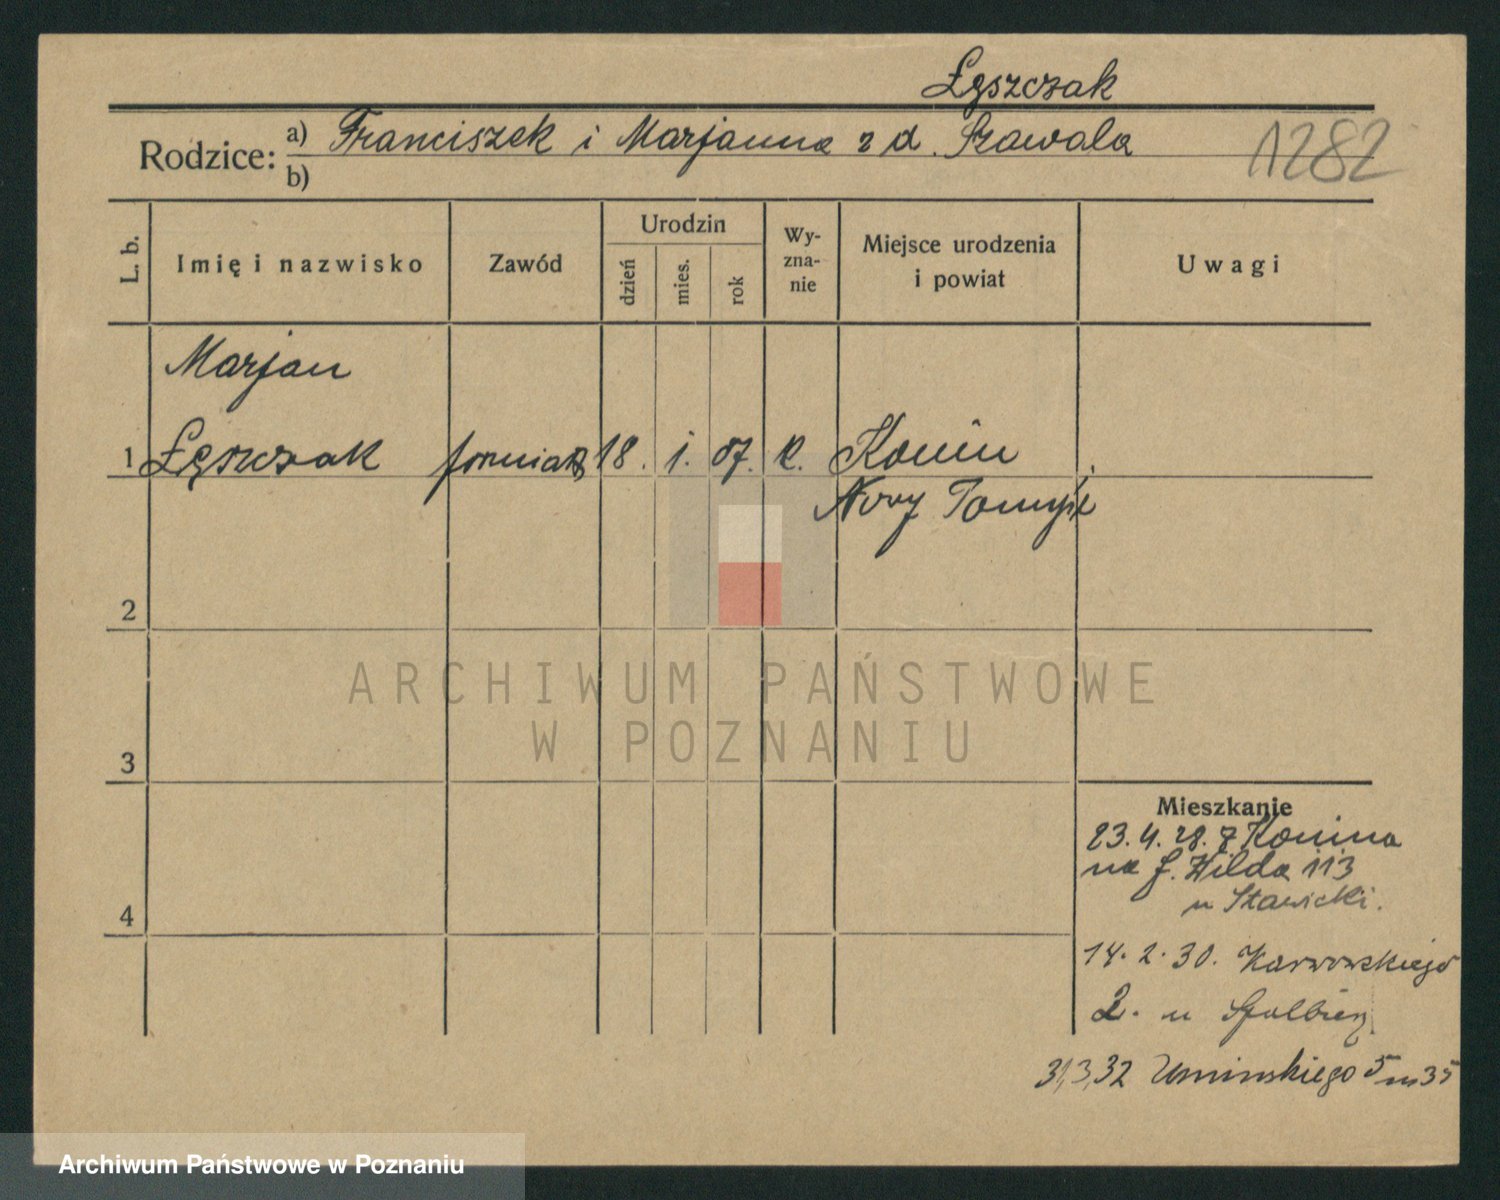 Łęszczak
Rodzice: a) Franciszek i Marjanna z d. Szawala
b)
1282
L. b.
Imię i nazwisko
Zawód
Urodzin
dzień
mies.
rok
Wy-
zna-
nie
Miejsce urodzenia
i powiat
Uwagi
Marjan
1 Łęszczak forniarz 18. 1. 07. k. Konin
Nowy Tomyśl
2
3
4
ARCHIWUM PAŃSTWOWE
W POZNANIU
Mieszkanie
23.4.28. z Konina
na G. Wilda 113
u Stawicki.
14.2.30. Karwowskiego
2. u
31,3,32 Umińskiego 5 m 35
Archiwum Państwowe w Poznaniu